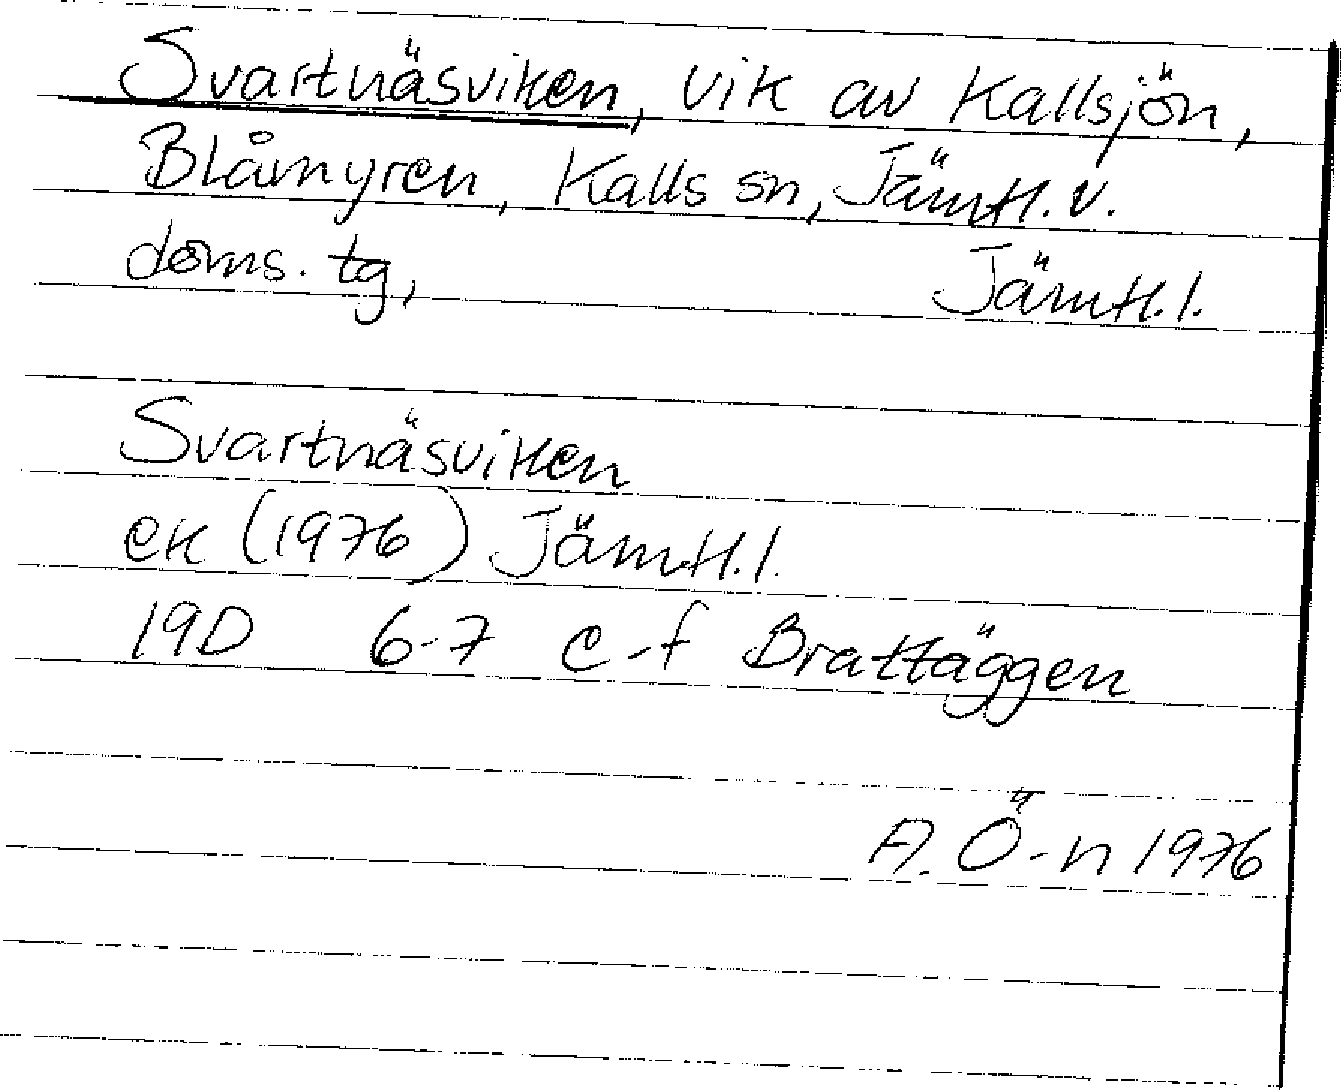 Svartnäsviken, vik av Kallsjön,
Blåmyren, Kalls sn, Jämtl. v.
doms. tg, Jämtl. l.
Svartnäsviken
ek (1976) Jämtl. l.
19D 6-7 e-f Brattäggen
A. Ö-n 1976